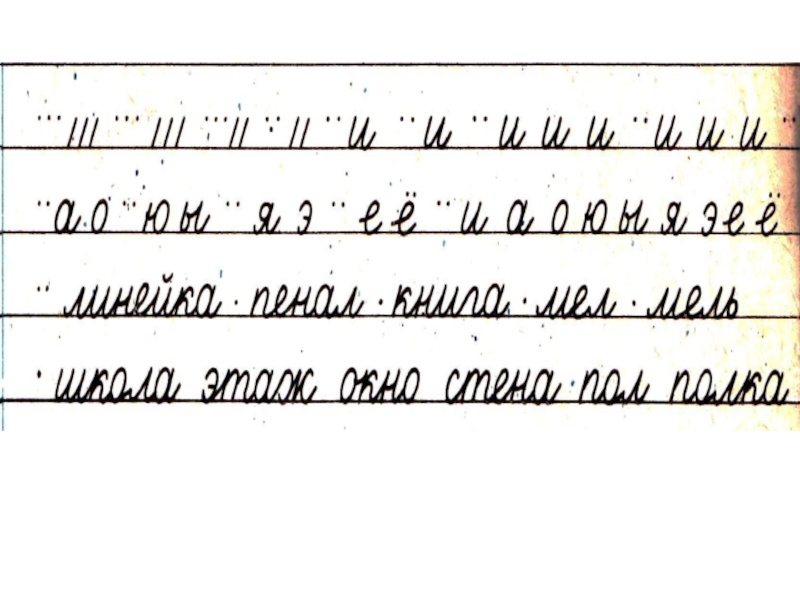 ııı ııı ıı ıı и и и и и и и и
а о ю ы я э е ё и а о ю ы я э е ё
линейка · пенал · книга · мел · мель
школа этаж окно стена пол полка